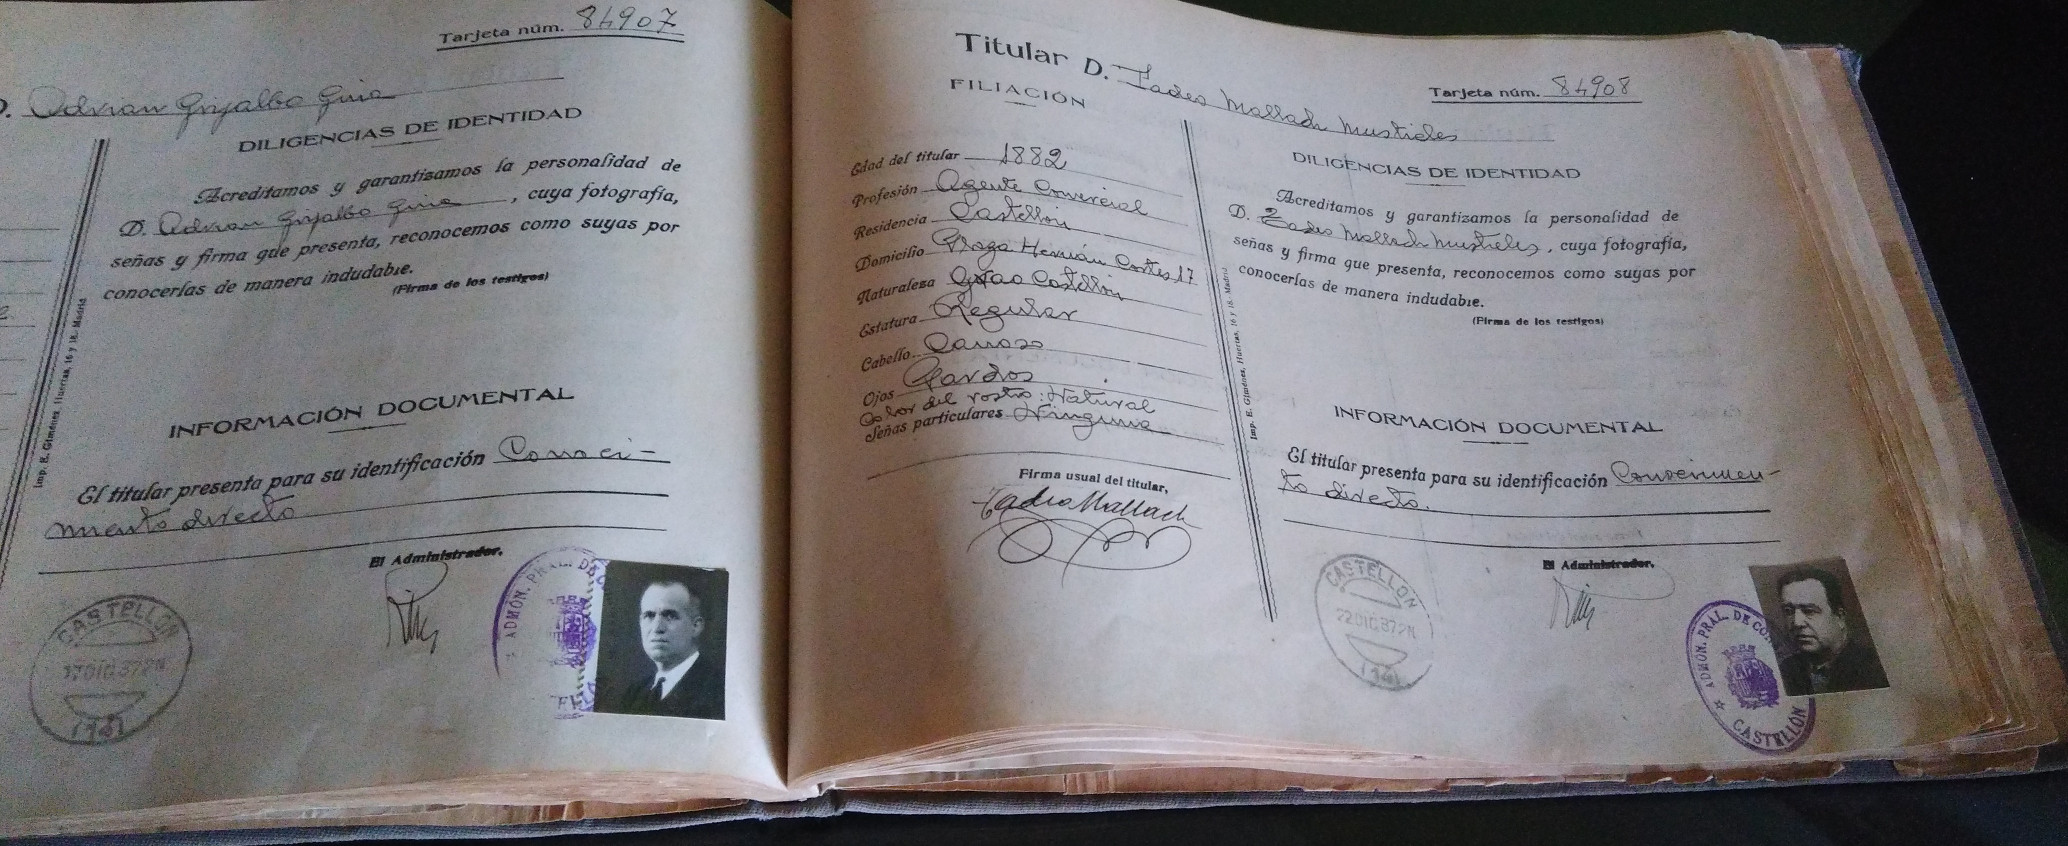 Tarjeta núm. 84907
D. Adrian Grijalbo
DILIGENCIAS DE IDENTIDAD
Acreditamos y garantizamos la personalidad de
D. Adrian Grijalbo , cuya fotografía,
señas y firma que presenta, reconocemos como suyas por
conocerlas de manera indudable.
(Firma de los testigos)
INFORMACIÓN DOCUMENTAL
El titular presenta para su identificación Conoci-
miento directo
El Administrador,
Imp. E. Giménez, Huertas, 16 y 18. Madrid
CASTELLON
1941
ADMÓN. PRAL. DE
Titular D. Tadeo Mallach Mustieles
Tarjeta núm. 84908
FILIACIÓN
Edad del titular 1882
Profesión Agente Comercial
Residencia Castellón
Domicilio Plaza Hernán Cortes, 17
Naturaleza Grao Castellón
Estatura Regular
Cabello Canoso
Ojos Pardos
Color del rostro: Natural
Señas particulares Ninguna
Firma usual del titular,
Tadeo Mallach
Imp. E. Giménez, Huertas, 16 y 18. Madrid
DILIGENCIAS DE IDENTIDAD
Acreditamos y garantizamos la personalidad de
D. Tadeo Mallach Mustieles, cuya fotografía,
señas y firma que presenta, reconocemos como suyas por
conocerlas de manera indudable.
(Firma de los testigos)
INFORMACIÓN DOCUMENTAL
El titular presenta para su identificación Conocimien-
to directo.
El Administrador,
CASTELLON
ADMÓN. PRAL. DE CO
CASTELLON